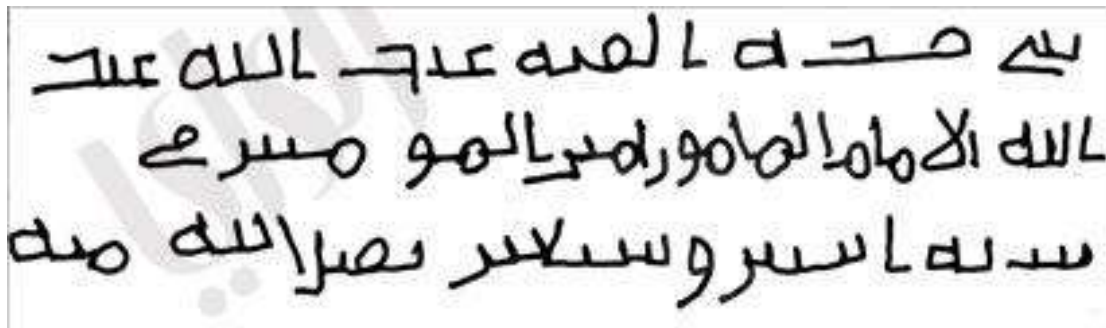 بني هده القبه عبد الله عبد
الله الامام المامون امير المومنين في
سنه اثنين وسبعين تقبل الله منه